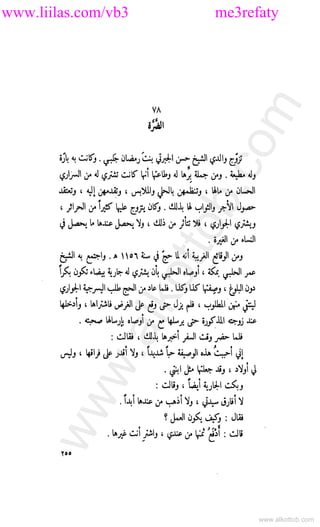 www.liilas.com/vb3 me3refaty
٧٨
الضَّرَّة
تزوّج والدي الشيخ حسن الجبرتي بنت رمضان جلبي . وكانت به بارّة
وله مطيعة . ومن جملة برّها له وطاعتها أنها كانت تشتري له من السراري
الحسان من مالها ، وتنظمهن بالحلي والملابس ، وتقدمهن إليه ، وتعتقد
حصول الأجر والثواب لها بذلك . وكان يتزوج عليها كثيراً من الحرائر ،
ويشتري الجواري ، فلا تتأثر من ذلك ، ولا يحصل عندها ما يحصل في
النساء من الغيرة .
ومن الوقائع الغريبة أنه لما حجّ في سنة ١١٥٦ هـ . واجتمع به الشيخ
عمر الحلبي بمكة ، أوصاه الحلبي بأن يشتري له جارية بيضاء تكون بكراً
دون البلوغ ، وصفتها كذا وكذا . فلما عاد من الحج طلب اليسرجية الجواري
لينتقي منهن المطلوب ، فلم يزل حتى وقع على الغرض فاشتراها ، وأدخلها
عند زوجته المذكورة حتى يرسلها مع من أوصاه بإرسالها صحبته .
فلما حضر وقت السفر أخبرها بذلك ، فقالت :
إني أحببتُ هذه الوصيفة حباً شديداً ، ولا أقدر على فراقها ، وليس
لي أولاد ، وقد جعلتها مثل ابنتي .
وبكت الجارية أيضاً ، وقالت :
لا أفارق سيدتي ، ولا أذهب من عندها أبداً .
فقال : وكيف يكون العمل ؟
قالت : أدفع ثمنها من عندي ، واشتر أنت غيرها .
٢٥٥
www.alkottob.com
www.alkottob.com